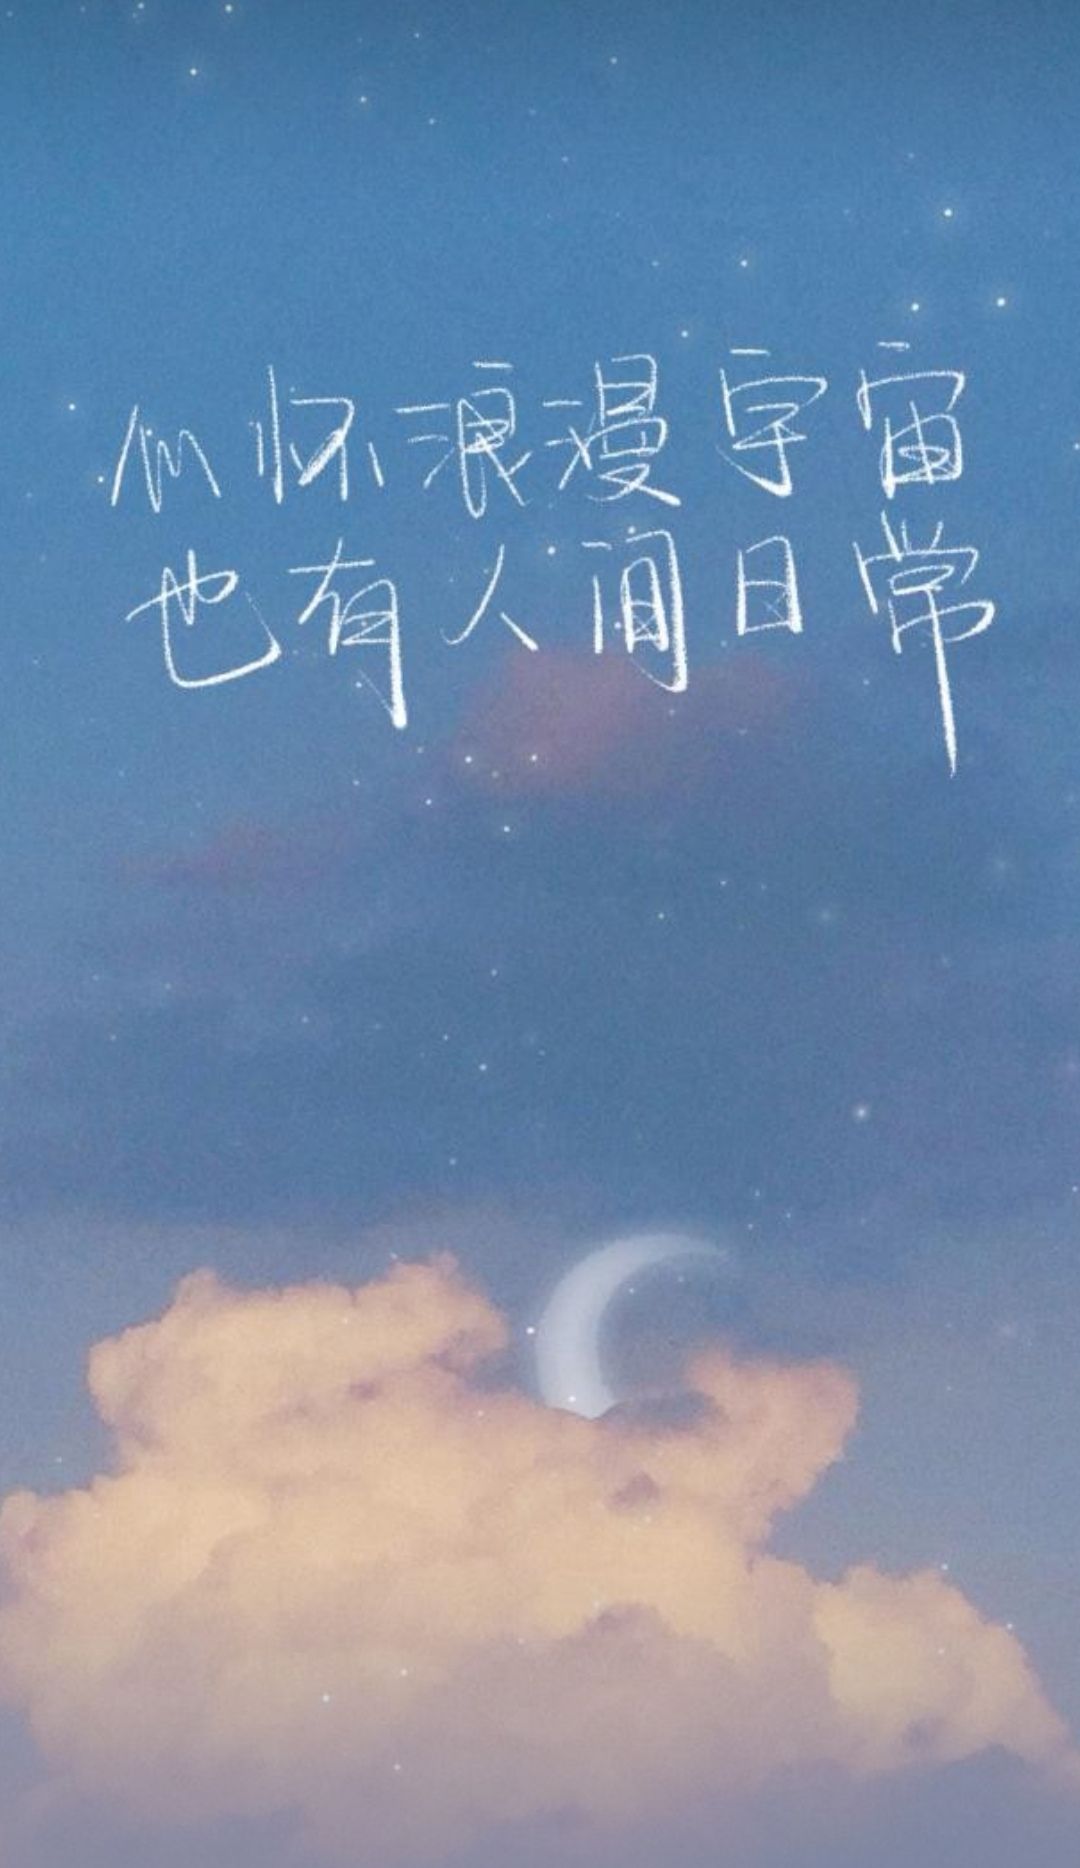 心怀浪漫宇宙
也有人间日常